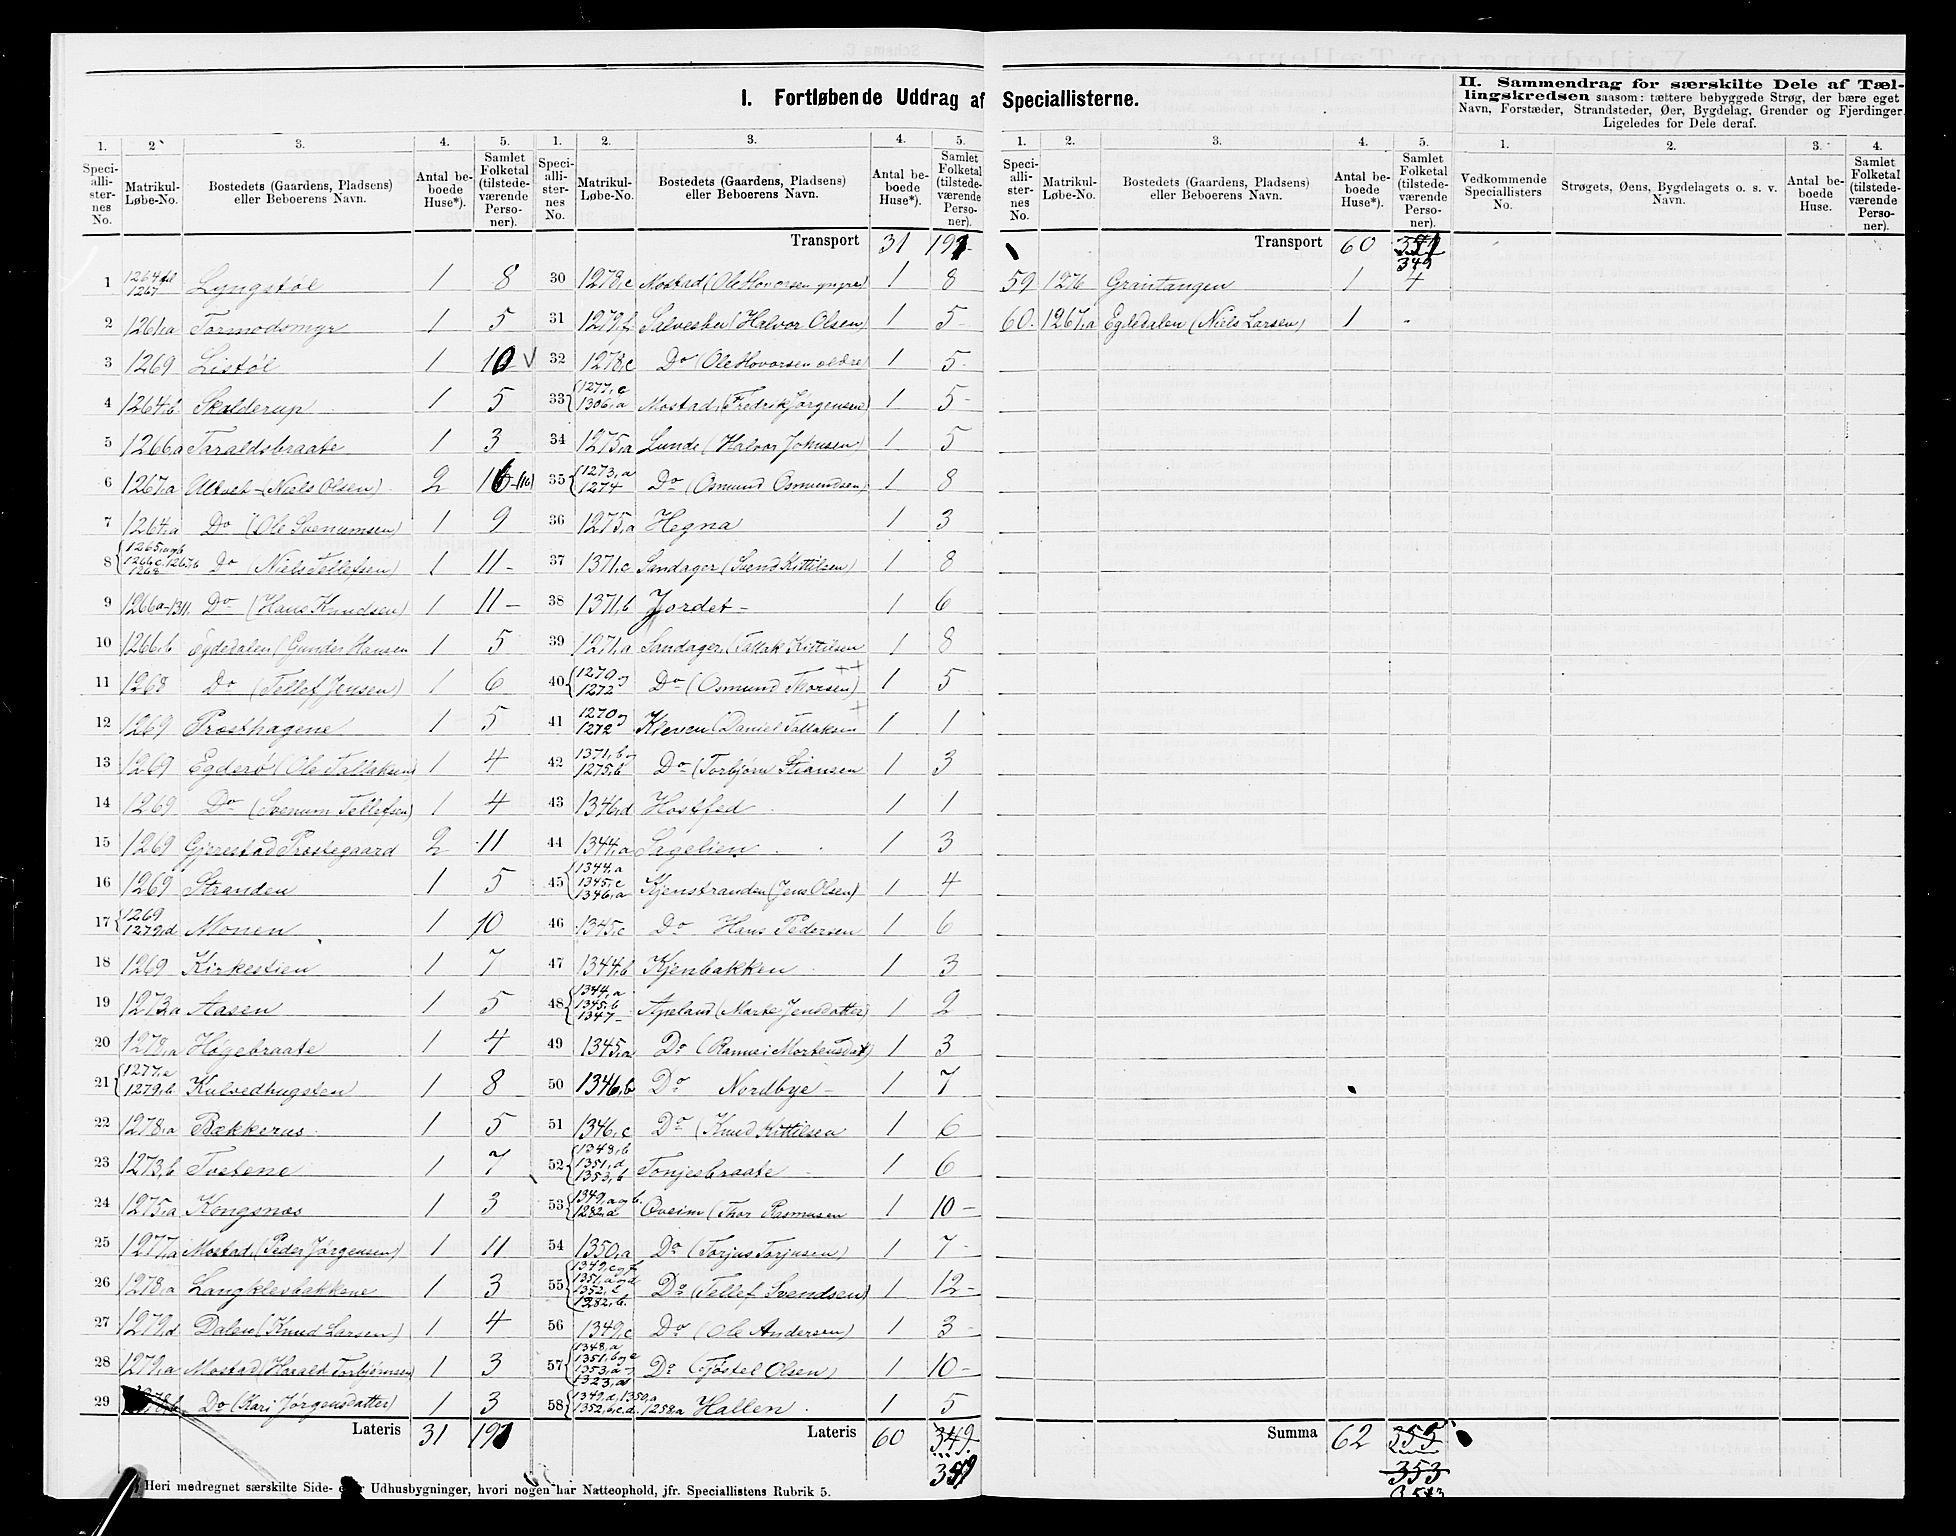 I. Fortløbende Uddrag af Speciallisterne.
II. Sammendrag for særskilte Dele af Tæl-
lingskredsen saasom: tættere bebyggede Strøg, der bære eget
Navn, Forstæder, Strandsteder, Øer, Bygdelag, Grender og Fjerdinger.
Ligeledes for Dele deraf.
1. 2. 3. 4. 5. 1. 2. 3. 4. 5. 1. 2. 3. 4. 5. 1. 2. 3. 4.
Speciallisternes No. Matrikul-Løbe-No. Bostedets (Gaardens, Pladsens) eller Beboerens Navn. Antal beboede Huse*). Samlet Folketal (tilstedeværende Personer).
Speciallisternes No. Matrikul-Løbe-No. Bostedets (Gaardens, Pladsens) eller Beboerens Navn. Antal beboede Huse*). Samlet Folketal (tilstedeværende Personer).
Speciallisternes No. Matrikul-Løbe-No. Bostedets (Gaardens, Pladsens) eller Beboerens Navn. Antal beboede Huse*). Samlet Folketal (tilstedeværende Personer).
Vedkommende Speciallisters No. Strøgets, Øens, Bygdelagets o. s. v. Navn. Antal beboede Huse. Samlet Folketal (tilstedeværende Personer).
1 1267 Lyngstøl 1 8
2 1261,a Tormodsmyr 1 5
3 1269 Listøl 1 10
4 1264,b Skalderup 1 5
5 1266a Taraldsbraate 1 3
6 1267,a (Niels Olsen) 2 16
7 1264,a Do (Ole Svenumsen) 1 9
8 1265,a og b 1266,c, 1267,b 1268 Do (Niels Tellefsen) 1 11 -
9 1266a-1311 Do (Hans Knudsen) 1 11 -
10 1266,b Egdedalen (Gunder Hansen 1 5
11 1268 Do (Tellef Jensen) 1 6
12 1269 Prosthagene 1 5
13 1269 Egderø (Ole Tallaksen) 1 4
14 1269 Do (Svenum Tellefsen) 1 4
15 1269 Gjerestad Prostegaard 2 11
16 1269 Stranden 1 5
17 1269 1279,d Monen 1 10
18 1269 Kirkestien 1 7
19 1273,a Aasen 1 5
20 1278,a Høgebraate 1 4
21 1277,e 1279,b Kulvedhugsten 1 8
22 1278,a Bækkerus 1 5
23 1273,b Tvetene 1 7
24 1275,a Kongsnæs 1 3
25 1277,a Mostad, (Peder Jørgensen) 1 11
26 1278,a Langklevbakkene 1 3
27 1279,d Dalen (Knud Larsen) 1 4
28 1279,a Mostad (Harald Torbjørnsen) 1 3
29 1278,b Do (Kari Jørgensdatter) 1 3
Lateris 31 191
Transport 31 191
30 1278,c Mostad (Ole Hovorsen yngre) 1 8
31 1279,f (Halvor Olsen) 1 5
32 1278,c Do (Ole Hovorsen ældre) 1 5
33 1277,c 1306,a Mostad, (Fredrik Jørgensen) 1 5
34 1275,a Lunde (Halvor Johnsen) 1 5
35 1273,a 1274 Do (Osmund Osmundsen) 1 8
36 1275,a Hegna 1 3
37 1371,c Sandager (Svend Kittilsen) 1 8
38 1371,b Jordet - 1 6
39 1271,a Sandager, (Tallak Kittilsen 1 8
40 1270 og 1272 Do (Osmund Thorsen) 1 5
41 1270 og 1272 Kleven (Daniel Tallaksen 1 1
42 1371,b og 1275,b Do (Torbjørn Stiansen 1 3
43 1346,d Hostfed 1 1
44 1344,a Sagelien 1 3
45 1344,a 1345,c 1346,a Kjenstranden (Jens Olsen) 1 4
46 1345,c Do Hans Pedersen 1 6
47 1344,b Kjenbakken 1 3
48 1344,a 1345,b 1347 Apeland (Marte Jensdatter) 1 2
49 1345,a Do (Mortensdat) 1 3
50 1346,b Do Nordbye - 1 7
51 1346,c Do (Knud Kittilsen 1 6
52 1348,b 1351,d 1353,b Tonjesbraate 1 6
53 1349,a og b. 1282,d Qveim (Thor Rasmusen 1 10 -
54 1350,a Do (Torjus Torjusen) 1 7
55 1349,c og f. 1351,a og d 1352, 1282,b. Do (Tellef Svendsen) 1 12 -
56 1349,c Do (Ole Andersen) 1 3
57 1348,a 1351,b og c 1353,a 1323,a Do (Tjøstel Olsen) 1 10 -
58 1349,d, 1350,a 1352,b,c,d. 1258a Hallen 1 5
Lateris 60 349
Transport 60
349
59 1276 Grantangen 1 4
60. 1267,a Egdedalen (Niels Larsen) 1 -
Summa 62 355
353
353
*) Heri medregnet særskilte Side- eller Udhusbygninger, hvori nogen har Natteophold, jfr. Speciallistens Rubrik 5.